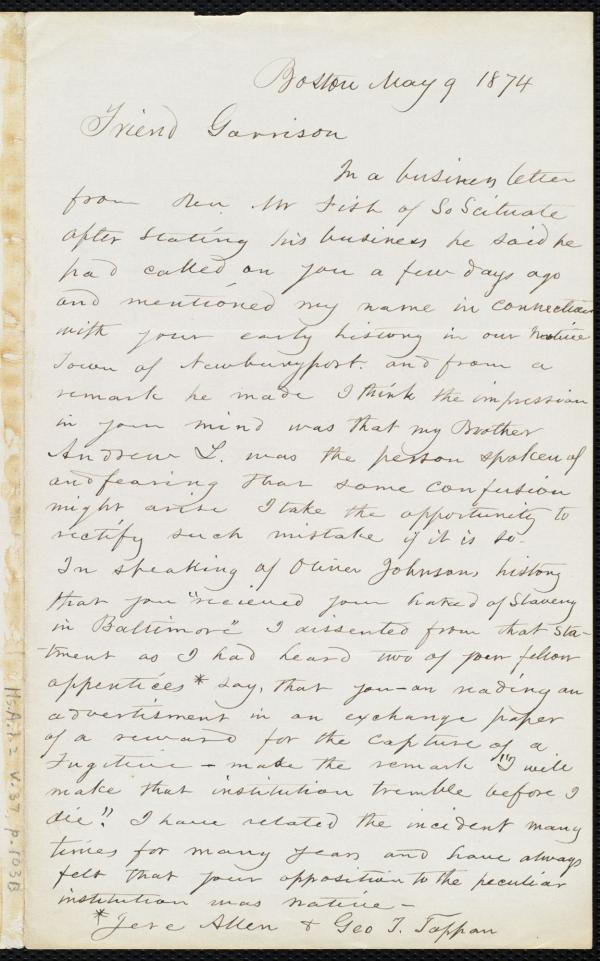 Boston May 9 1874
Friend Garrison
In a business letter
from Rev. Mr Fish of So Scituate
after stating his business he said he
had called on you a few days ago
and mentioned my name in connection
with your early history in our native
Town of Newburyport. and from a
remark he made I think the impression
in your mind was that my Brother
Andrew L. was the person spoken of
and fearing that some confusion
might arise I take the opportunity to
rectify such mistake if it is so.
In speaking of Oliver Johnsons history
that you "recieved your hatred of Slavery
in Baltimore" I dissented from that Sta-
tment as I had heard two of your fellow
appentices * say, that you—on reading an
advertisment in an exchange paper
of a reward for the capture of a
Fugitive — made the remark "I will
make that institution tremble before I
die"! I have related the incident many
times for many years and have always
felt that your opposition to the peculiar
institution was native —
* Jere Allen & Geo T. Tappan
Ms.A.1.2 v.37, p.103B